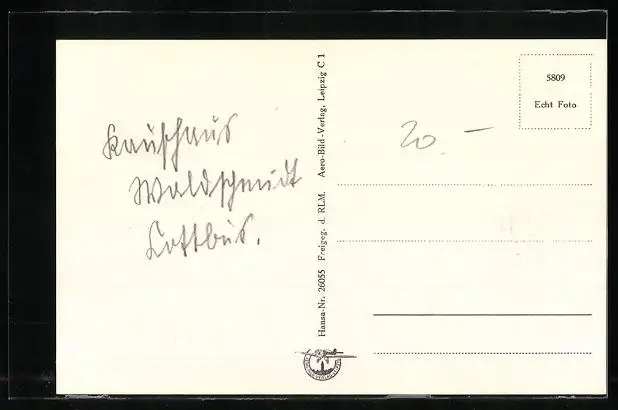 Kaufhaus
Waldschmidt
Cottbus.
Hansa-Nr. 26055 Freigeg. d. RLM. Aero-Bild-Verlag, Leipzig C 1
20.–
5809
Echt Foto